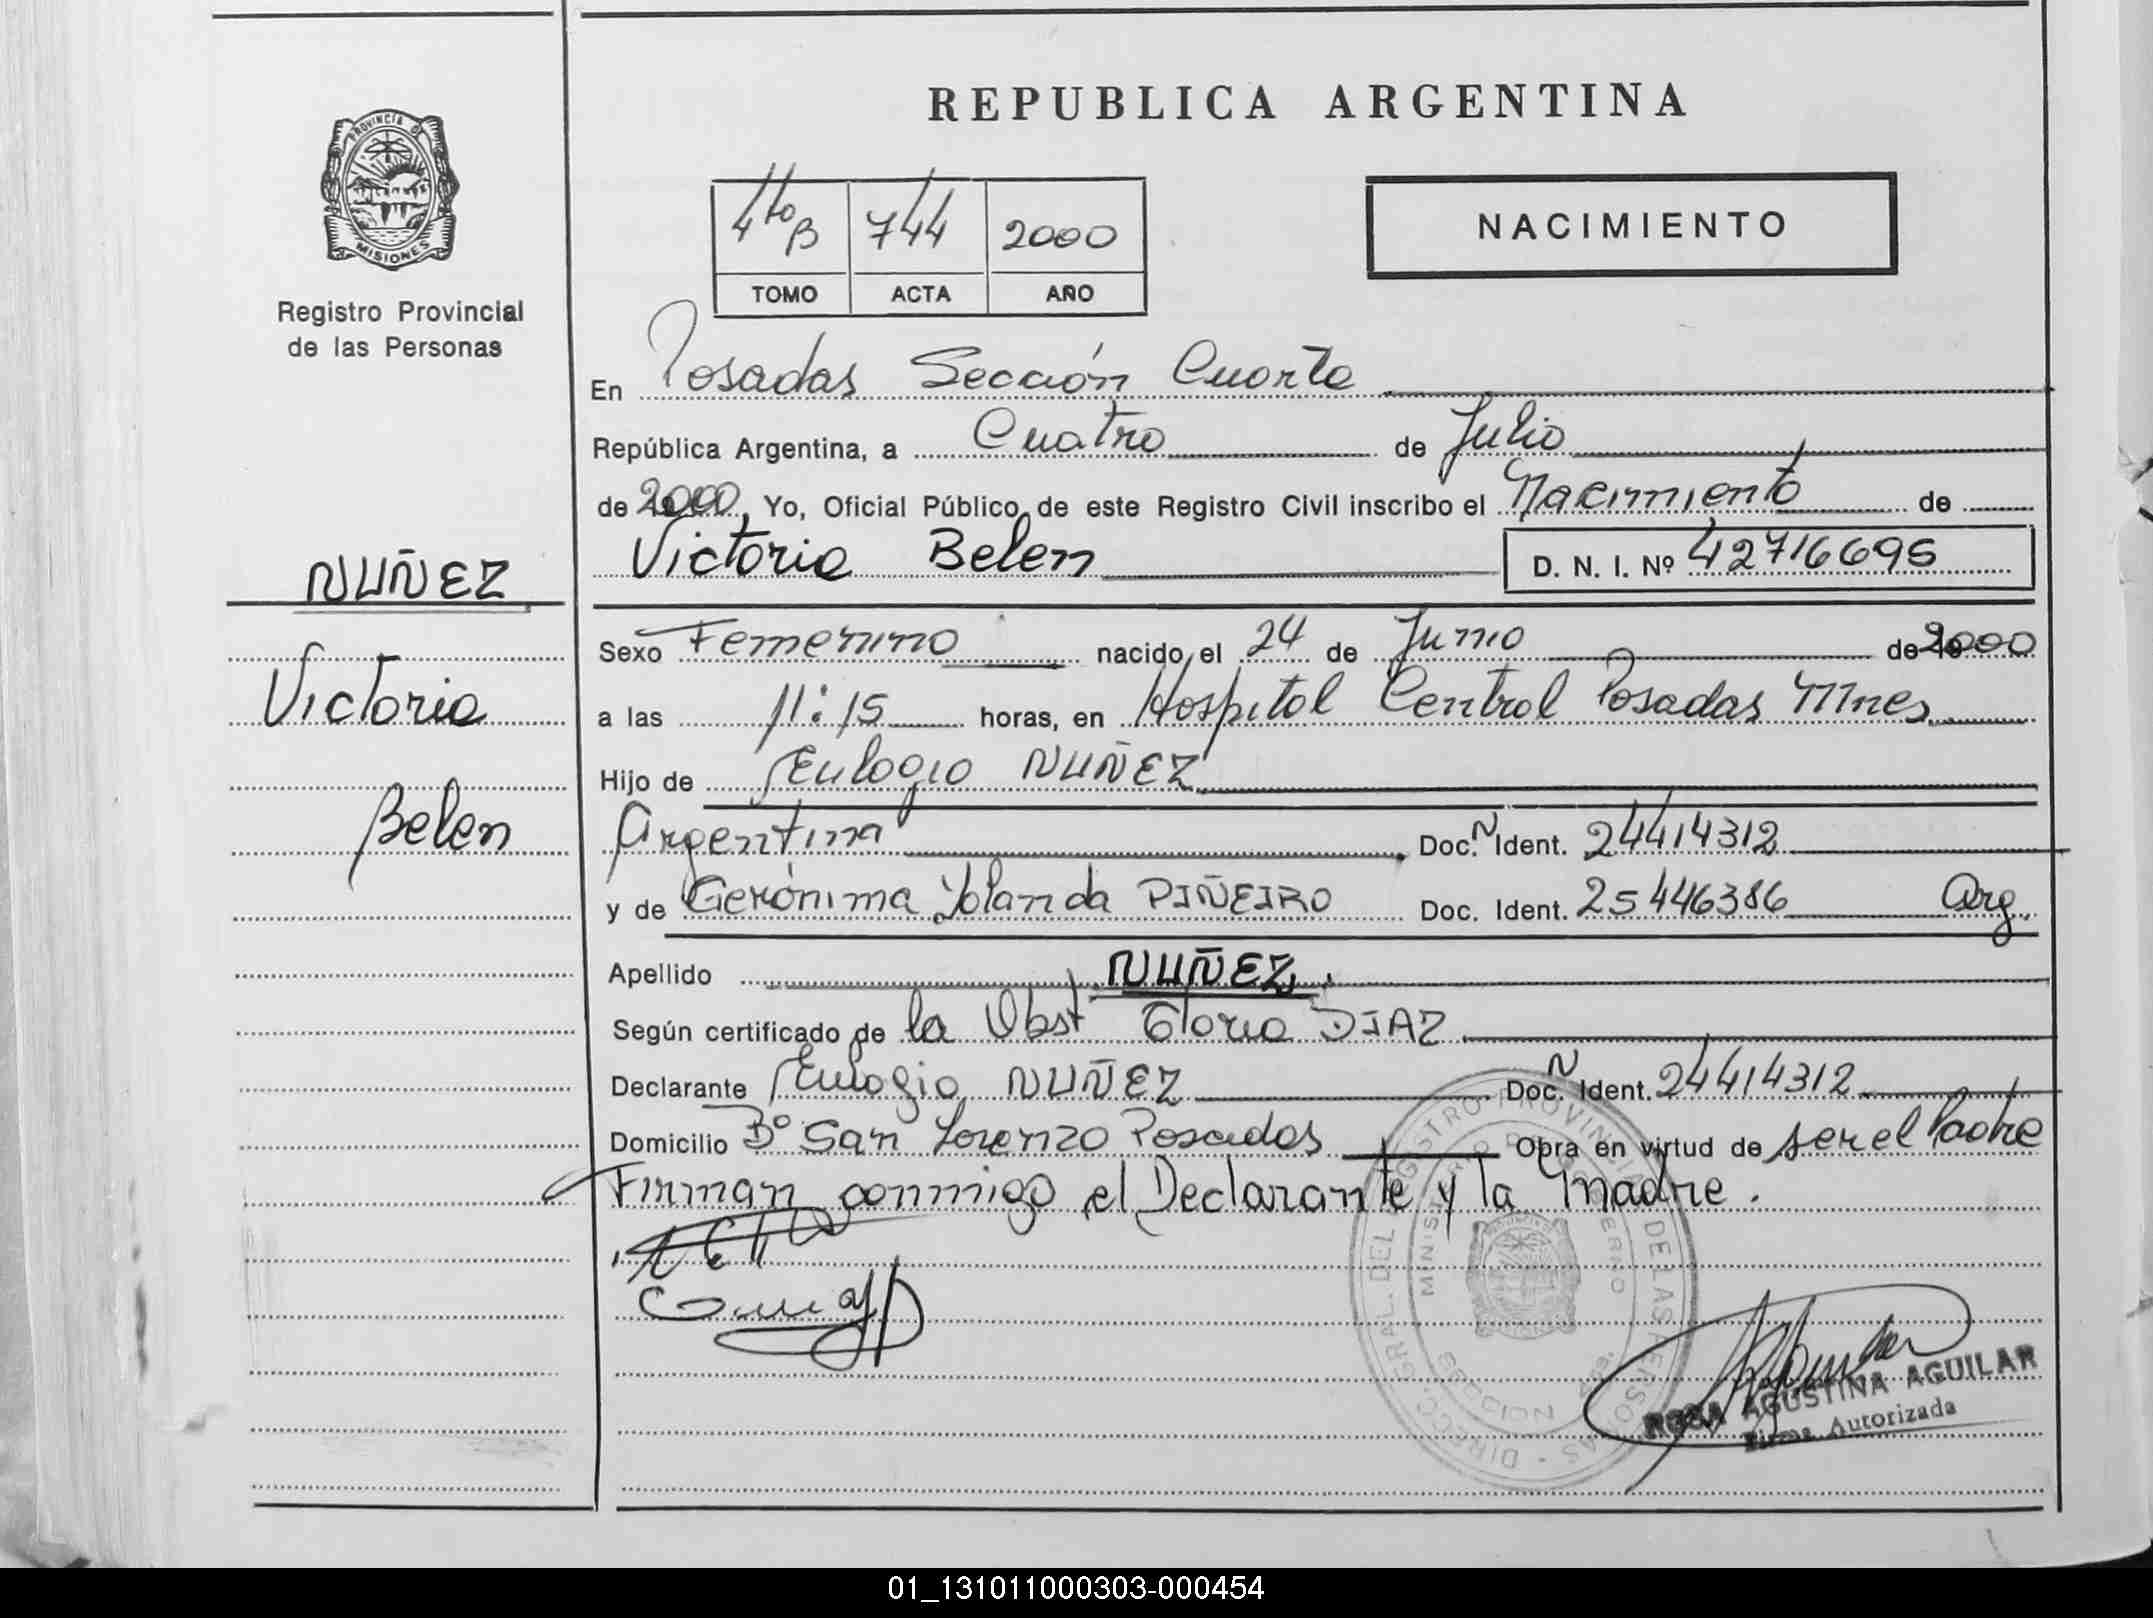 REPUBLICA ARGENTINA
PROVINCIA DE MISIONES
Registro Provincial
de las Personas
4to B 744 2000
TOMO ACTA AÑO
NACIMIENTO
En Posadas Sección Cuarta
República Argentina, a Cuatro de Julio
de 2000, Yo, Oficial Público de este Registro Civil inscribo el Nacimiento de
Victoria Belen D. N. I. Nº 42716695
NUÑEZ
Victoria
Belen
Sexo Femenino nacido el 24 de Junio de 2000
a las 11:15 horas, en Hospital Central Posadas Mnes
Hijo de Eulogio NUÑEZ
Argentina Doc. N Ident. 24414312
y de Gerónima Yolanda PIÑEIRO Doc. Ident. 25446386 Arg.
Apellido NUÑEZ.
Según certificado de la Obst Gloria DIAZ
Declarante Eulogio NUÑEZ Doc. N Ident. 24414312
Domicilio Bº San Lorenzo Posadas Obra en virtud de ser el Padre
Firman conmigo el Declarante y la Madre.
DIRECC. GRAL. DEL REGISTRO PROVINCIAL DE LAS PERSONAS
MINISTERIO DE GOBIERNO
SECCION 4ta.
ROSA AGUSTINA AGUILAR
Firma Autorizada
01_131011000303-000454